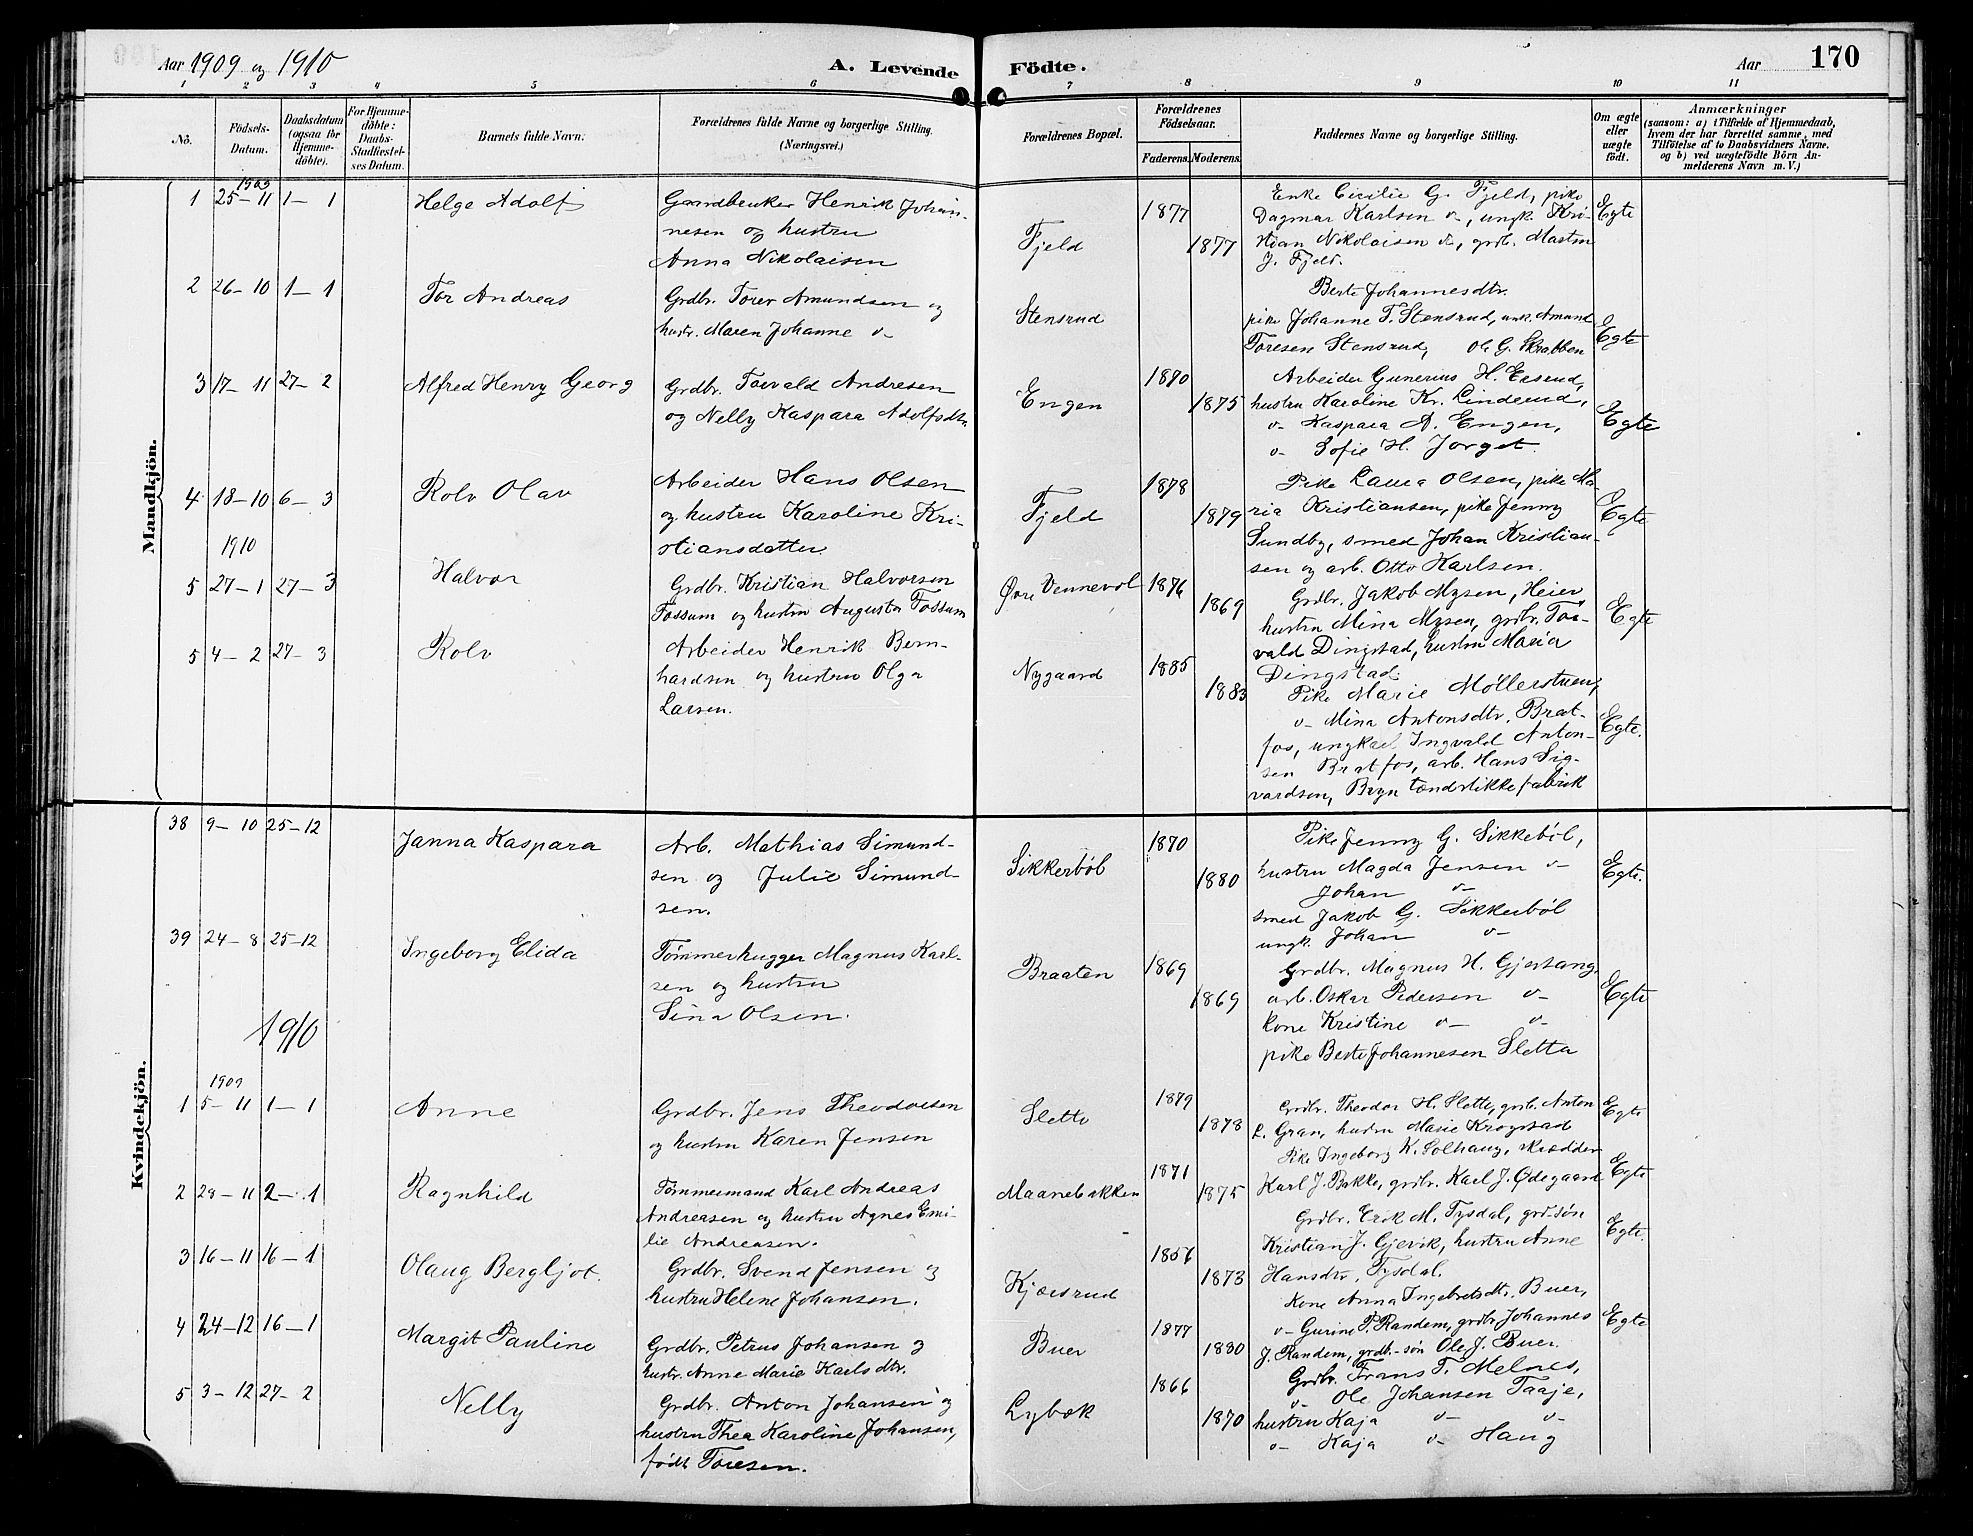 Aar 1909 og 1910
A. Levende Födte.
Aar
170
1 2 3 4 5 6 7 8 9 10 11
No.
Födsels-Datum.
Daabsdatum (ogsaa for Hjemme-döbte).
For Hjemme-döbte: Daabs-Stadfæstel-ses Datum.
Barnets fulde Navn.
Forældrenes fulde Navne og borgerlige Stilling. (Næringsvei.)
Forældrenes Bopæl.
Forældrenes Födselsaar.
Faderens. Moderens.
Faddernes Navne og borgerlige Stilling.
Om ægte eller uægte födt.
Anmærkninger
(saasom: a) i Tilfælde af Hjemmedaab, hvem der har forrettet samme, med Tilföielse af to Daabsvidners Navne, og b) ved uægtefödte Börn An-melderens Navn m. V.)
Mandkjön.
1909
1 25-11 1-1 Helge Adolf
Gaardbruker Henrik Johan-
nesen og hustru
Anna Nikolaisen
Fjeld
1877
1877
Enke Cecilie G. Fjeld, pike
Dagmar Karlsen v-, ungk. Kri-
stian Nikolaisen v-, grdb. Martin
J. Fjeld.
Egte
2 26-10 1-1 Tor Andreas
Grdbr. Torer Amundsen og
hustr. Maren Johanne v-
Stensrud
Berte Johannesdtr.
pike Johanne T. Stensrud, unk. Amund
Toresen Stensrud, Ole G. Skrabben
Egte
3 17-11 27-2 Alfred Henry Georg
Grdbr. Torvald Andresen
og Nelly Kaspara Adolfsdtr.
Engen
1870
1875
Arbeider Gunerius H. Eesrud,
hustru Karoline Kr. Linderud,
v- Kaspara A. Engen,
v- Sofie H. Jorget.
Egte
4 18-10 6-3 Rolv Olav
Arbeider Hans Olsen
og hustru Karoline Kri-
stiansdatter
Fjeld
1878
1879
Pike Laura Olsen, pike Ma-
ria Kristiansen, pike Jenny
Sundby, smed Johan Kristian-
sen og arb. Otto Karlsen.
Egte
1910
5 27-1 27-3 Halvor
Grdbr. Kristian Halvorsen
Fossum og hustru Augusta Fossum
Øvre Vennevol
1876
1869
Grdbr. Jakob Mysen, Heier,
hustru Mina Mysen, grdbr. Tor-
vald Dingstad, hustru Maria
Dingstad
Egte
5 4-2 27-3 Rolv
Arbeider Henrik Bern-
hardsen og hustru Olga
Larsen.
Nygaard
1885
1883
Pike Marie Møllerstuen,
v- Mina Antonsdtr. Brat-
fos, ungkarl Ingvald Anton-
sen Bratfos, arb. Hans Sig-
vardsen, Bryn tændstikkefabrik
Egte.
Kvindekjön.
38 9-10 25-12 Janna Kaspara
Arb. Mathias Simund-
sen og Julie Simund-
sen.
Sikkerbøl
1870
1880
Pike Jenny G. Sikkebøl,
hustru Magda Jensen v-
Johan v-
smed Jakob G. Sikkerbøl
ungk. Johan v-
Egte.
39 24-8 25-12 Ingeborg Elida
Tømmerhugger Magnus Karl-
sen og hustru
Sina Olsen.
Braaten
1869
1869
Grdbr. Magnus H. Gjestang,
arb. Oskar Pedersen v-
kone Kristine v- v-
pike Berte Johannesen Sletta
Egte
1910
1909
1 5-11 1-1 Anne
Grdbr. Jens Theodorsen
og hustru Karen Jensen
Slette
1879
1878
Grdbr. Theodor H. Slette, grdb. Anton
L. Gran, hustru Marie Krogstad
Pike Ingeborg K. Solhaug, skrædder
Karl J. Bakke, grdbr. Karl J. Ødegaard
Egte
2 28-11 2-1 Ragnhild
Tømmermand Karl Andreas
Andreasen og hustru Agnes Emi-
lie Andreasen.
Maanebakken
1871
1875
Grdbr. Erik M. Tysdal, grd-søn
Kristian J. Gjevik, hustru Anne
Hansdtr, Tysdal.
Egte
3 16-11 16-1 Olaug Bergljot.
Grdbr. Svend Jensen og
hustru Helene Johansen.
Kjærsrud
1856
1873
Kone Anna Ingebretsdtr. Buer,
v- Gurine P. Randem, grdbr Johannes
J. Randem, grdb.-søn Ole J. Buer.
Egte.
4 24-12 16-1 Margit Pauline
Grdbr. Petrus Johansen og
hustr. Anne Marie Karlsdtr.
Buer
1877
1880
Grdbr. Frans T. Melnes,
v- Ole Johansen Taaje,
hustru Kaja v- v-
v- Kaja v- Haug
Egte
5 3-12 27-2 Nelly
Grdbr. Anton Johansen og
hustru Thea Karoline Johansen,
født Toresen.
Lybæk
1866
1870